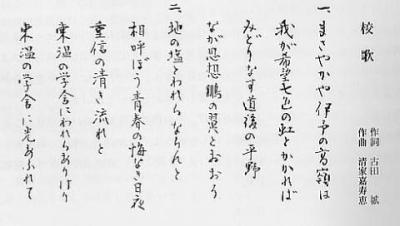 校歌
作詞 古田 拡
作曲 清家嘉寿恵
一、まさやかや伊予の高嶺は
我が希望七色の虹とかかれば
みどりなす道後の平野
なが思想鵬の翼とおおう
二、地の塩とわれらならんと
相呼ぼう青春の悔なき日夜
重信の清き流れと
東温の学舎にわれらありけり
東温の学舎に光あふれて